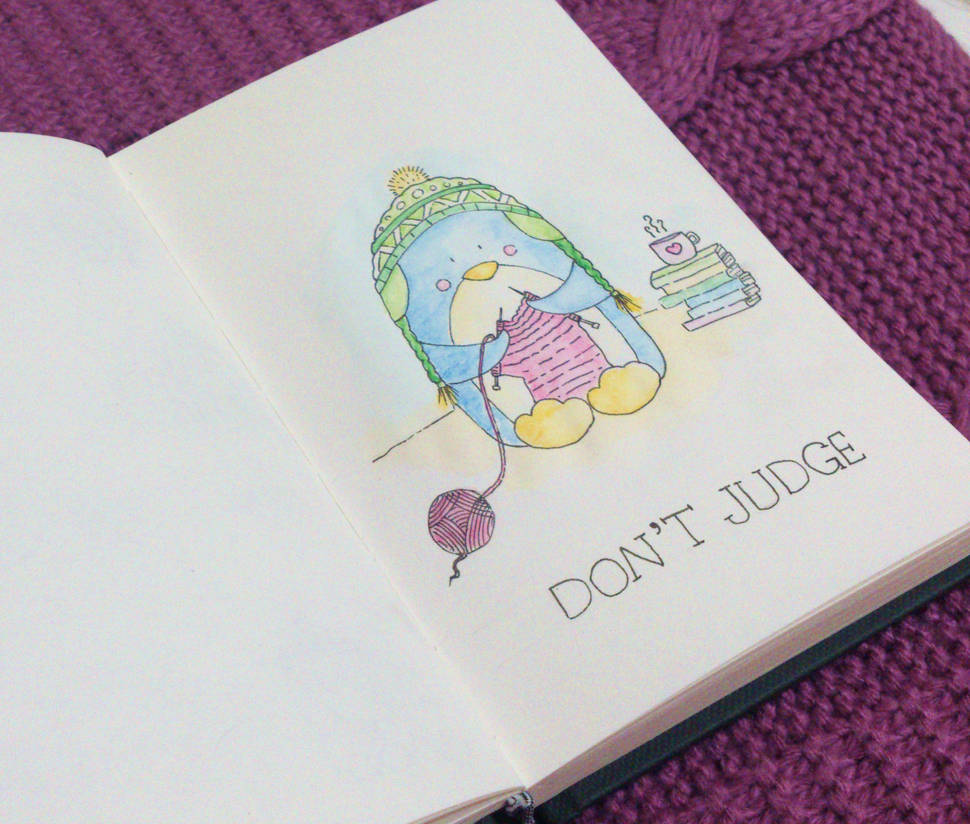 DON'T JUDGE